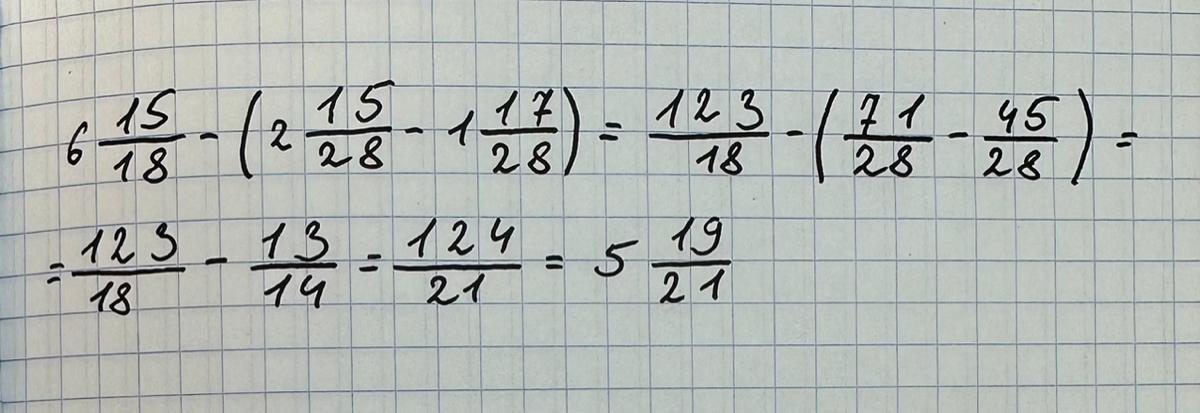 6 15/18 - (2 15/28 - 1 17/28) = 123/18 - (71/28 - 45/28) =
= 123/18 - 13/14 = 124/21 = 5 19/21